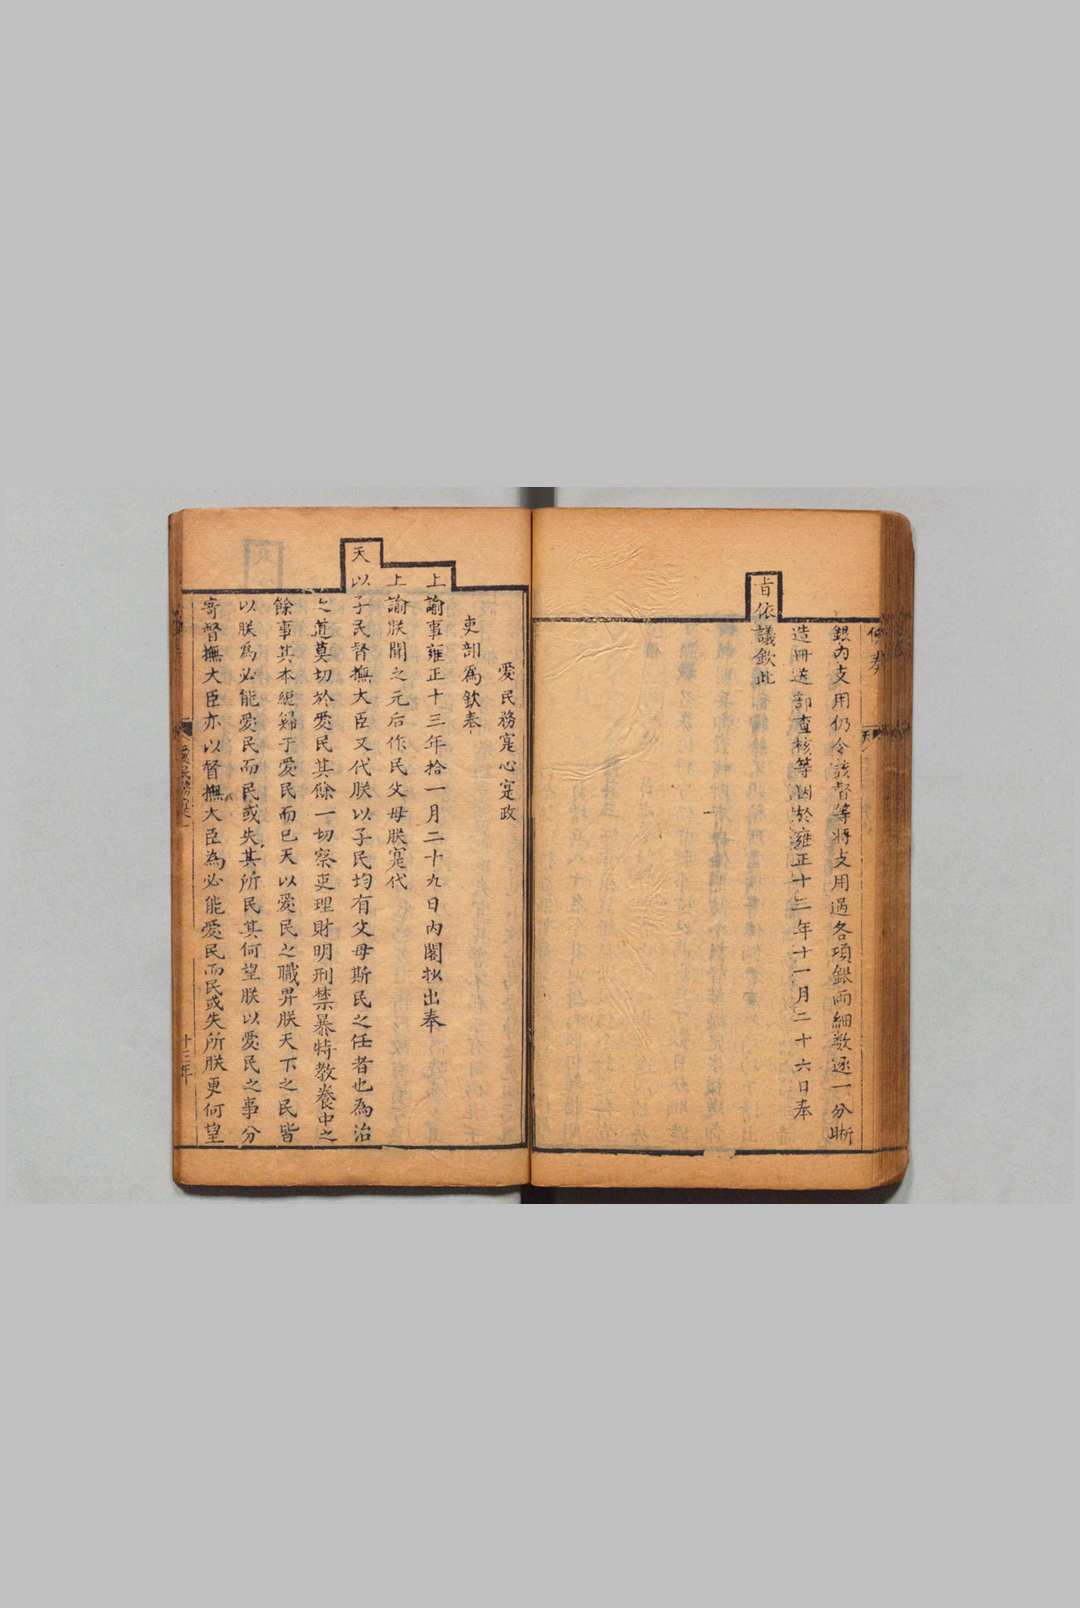 銀內支用仍令該督等將支用過各項銀兩細數逐一分晰
造冊送部查核等因於雍正十三年十一月二十六日奉
旨依議欽此
愛民務寔心寔政
吏部為欽奉
上諭事雍正十三年拾一月二十九日內閣抄出奉
上諭朕聞之元后作民父母朕寔代
天以子民督撫大臣又代朕以子民均有父母斯民之任者也為治
之道莫切於愛民其餘一切察吏理財明刑禁暴特教養中之
餘事其本總歸于愛民而已天以愛民之職畀朕天下之民皆
以朕為必能愛民而民或失其所民其何望朕以愛民之事分
寄督撫大臣亦以督撫大臣為必能愛民而民或失所朕更何望
十三年